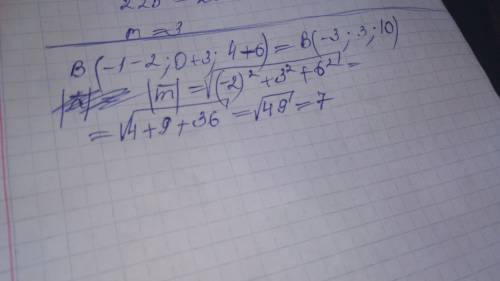 m = 3
B(-1-2; 0+3; 4+6) = B(-3; 3; 10)
|m̅| = √((-2)² + 3² + 6²) =
= √(4+9+36) = √49 = 7